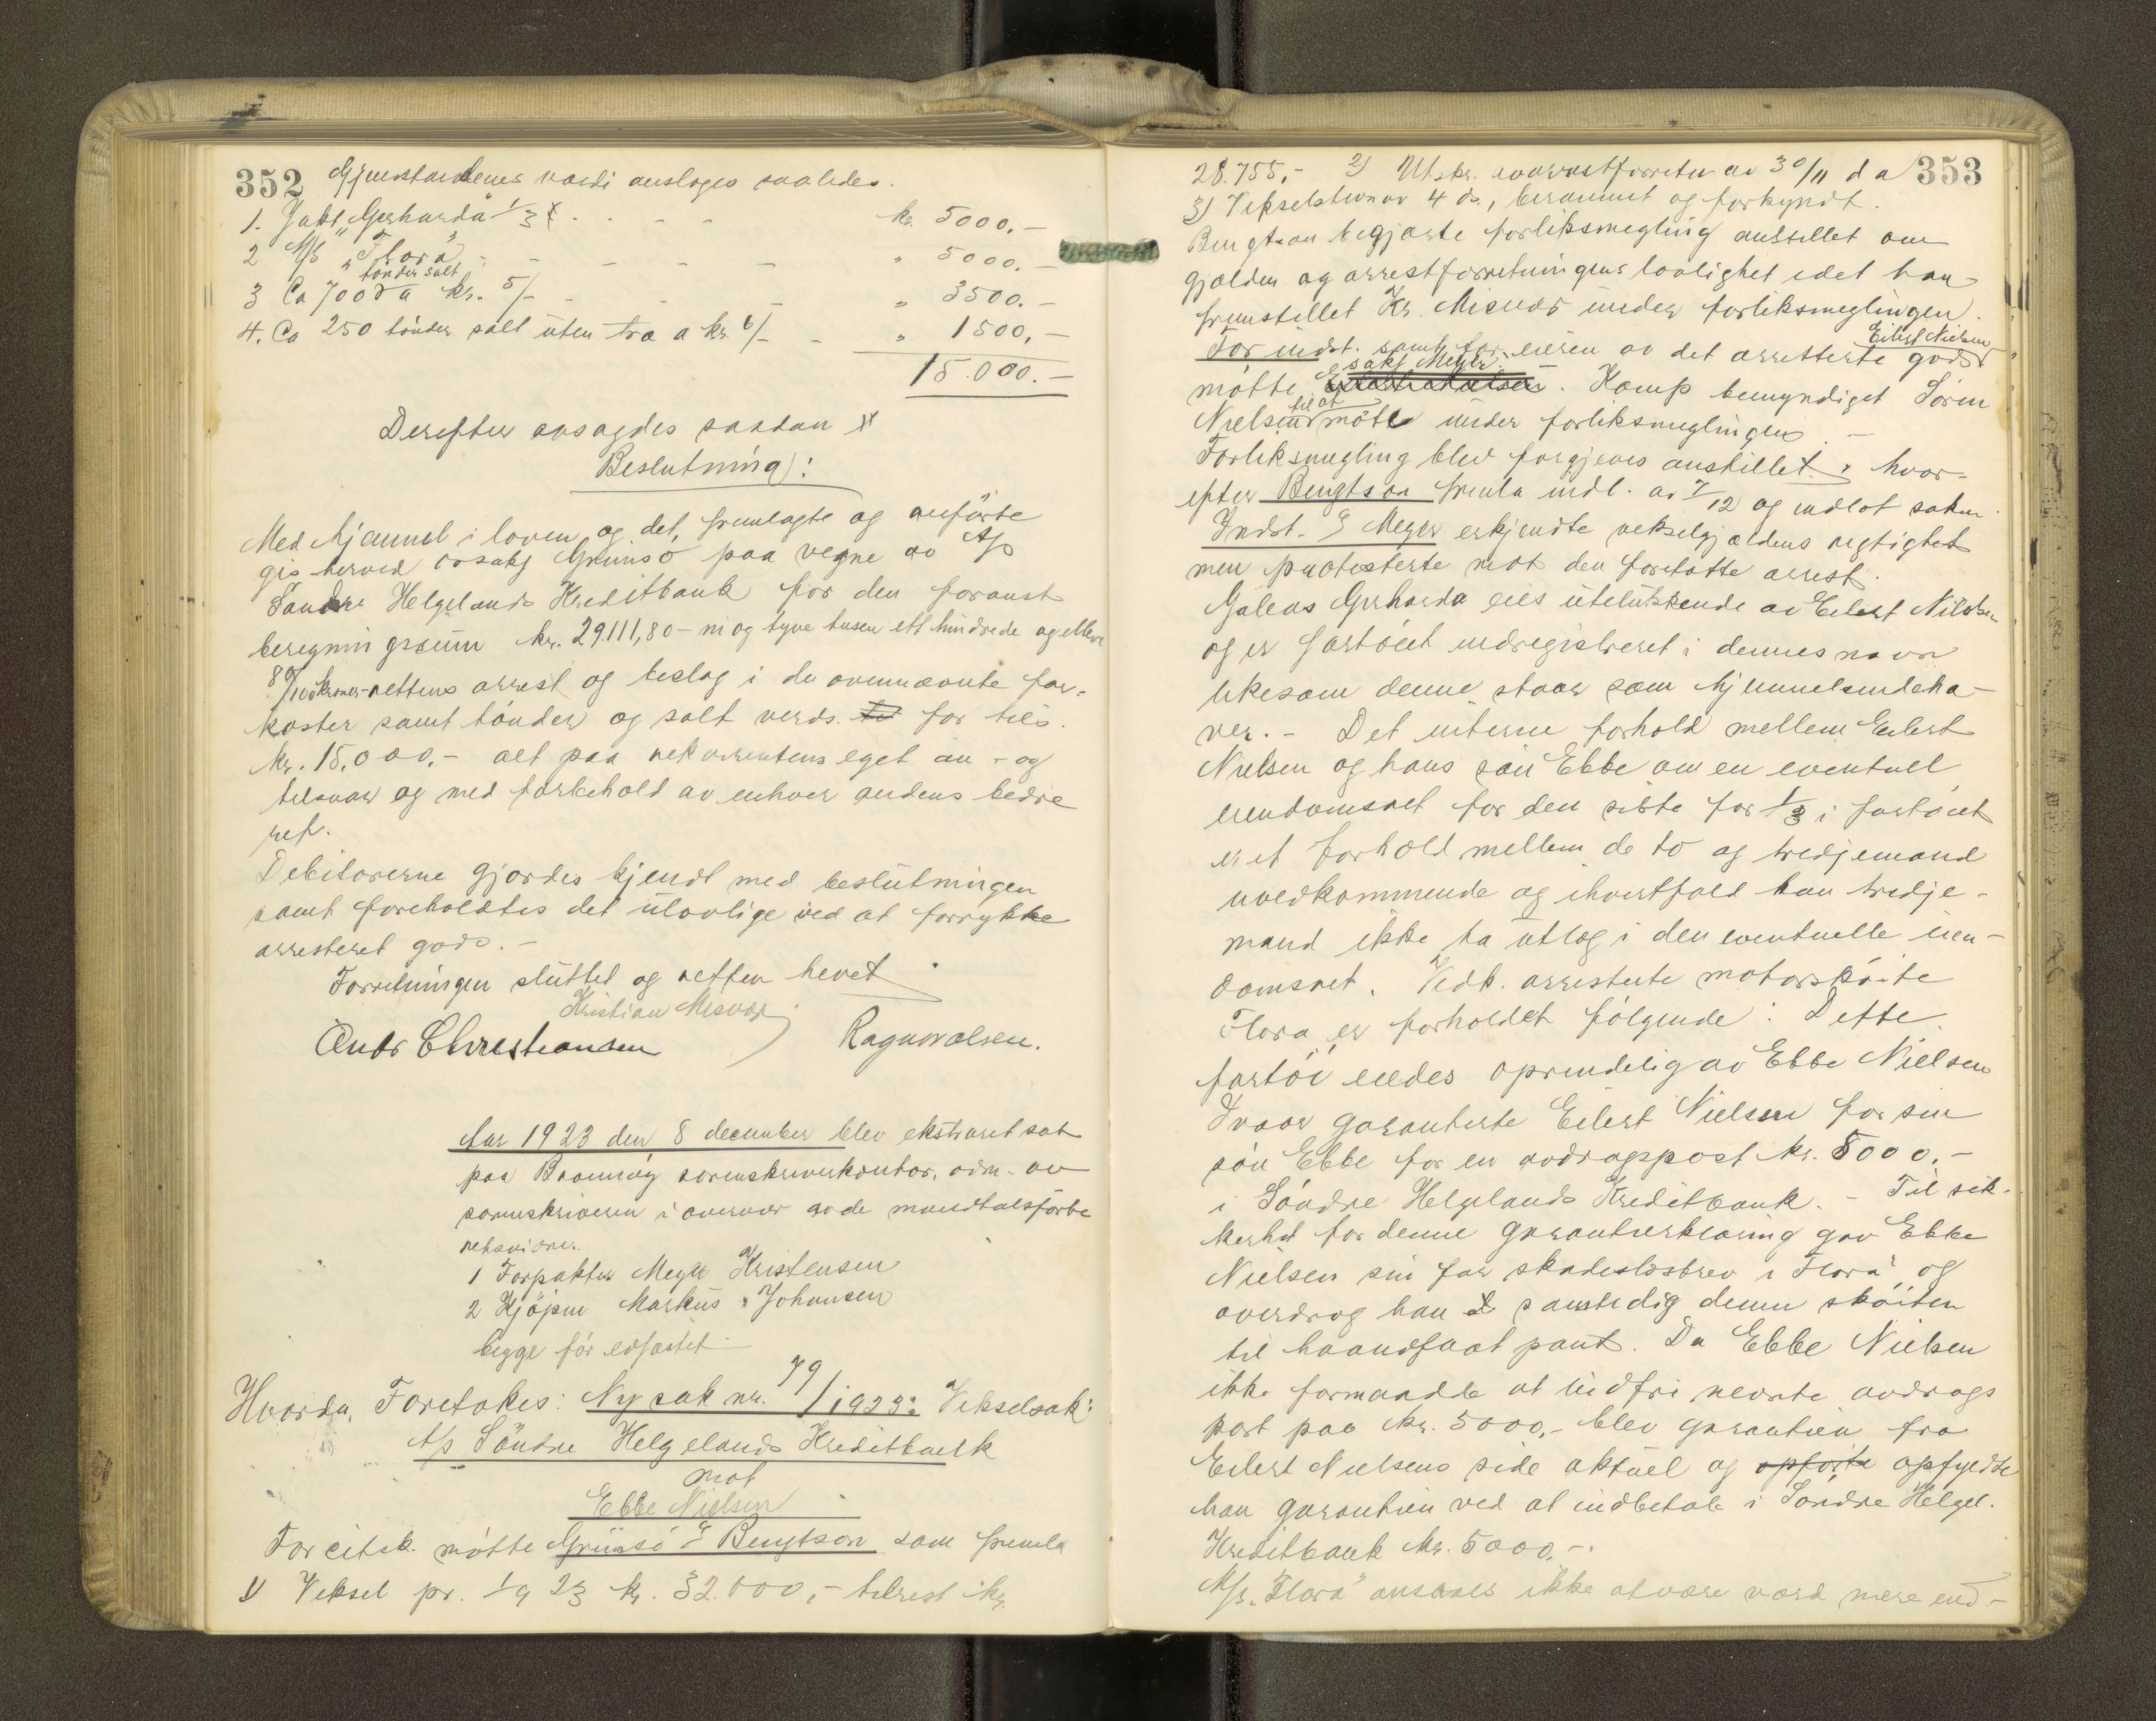 352 Gjenstandenes værdi ansloges saaledes.
1. Jakt "Gerharda" 1/3 kr. 5000.-
2 M/S "Flora" - - - - - " 5000.-
tønder salt
3 Ca 700 da a kr. 5/- - - - " 3500.-
4. Ca 250 tønder salt uten træ a kr. 6/- - " 1500,-
15.000.-
Derefter avsagdes saadan
Beslutning:
Med hjemmel i loven og det fremlagte og anførte
gis herved ovsakf Grimsø paa vegne av A/s
Søndre Helgelands Kreditbank for den foranst
beregningssum kr. 29.111,80 - ni og tyve tusen ett hundrede og elleve
80/100 kroner - rettens arrest og beslag i de ovennævnte far-
koster samt tønder og salt verds. for tils.
kr. 15.000.- alt paa rekvirentens eget an- og
tilsvar og med forbehold av enhver andens bedre
ret.
Debitorerne gjordes kjendt med beslutningen
samt foreholdtes det ulovlige ved at forrykke
arresteret gods. -
Forretningen sluttet og retten hevet.
Kristian Misvær
Andr Christiansen Ragnvalsen.
Aar 1923 den 8 december blev ekstraret sat
paa Brønnøy sorenskriverkontor, adm. av
sorenskriveren i overvær av de mandtalsførte
retsvidner.
1 Forpakter Meyer Kristensen
2 Kjøpm Markus Johansen
begge før edfæstet
Hvorda, Foretokes: Ny sak nr. 79/1923: Vekselsak:
A/s Søndre Helgelands Kreditbank
mot
Ebbe Nielsen
For citsk. møtte Grimsø ved Bengtson som fremla
1) Veksel pr. 1/9 23 kr. 32.000,- tilrest kr.
28.755,- 2) Utskr. av arrestforretn av 30/11 d a 353
3) Vekselstevn av 4 ds., berammet og forkyndt.
Bengtson begjærte forliksmegling anstillet om
gjælden og arrestforretningens lovlighet idet han
fremstillet Kr. Misvær under forliksmeglingen.
Eilert Nielsen
For indst. samt for eieren av det arresterte gods
sakf Meyer
møtte. Kamp bemyndiget Søren
til at
Nielsen møte under forliksmeglingen. -
Forliksmegling blev forgjeves anstillet, hvor-
efter Bengtson fremla indl. av 7/12 og indlot saken.
Indst. ved Meyer erkjendte vekselgjældens rigtighet
men protesterte mot den foretatte arrest.
Galeas Gerharda eies utelukkende av Eilert Nielsen
og er fartøiet indregistreret i dennes navn
likesom denne staar som hjemmelsindeha-
ver. - Det interne forhold mellem Eilert
Nielsen og hans søn Ebbe om en eventuel
eiendomsret for den siste for 1/3 i fartøiet
er et forhold mellem de to og tredjemand
uvedkommende og ihvertfald kan tredje-
mand ikke ta utlæg i den eventuelle eien-
domsret. Vedk. arresterte motorskøite
Flora er forholdet følgende: Dette
fartøi eiedes oprindelig av Ebbe Nielsen
Ivaar garanterte Eilert Nielsen for sin
søn Ebbe for en avdragspost kr. 5000.-
i Søndre Helgelands Kreditbank. - Til sik-
kerhet for denne garantierklæring gav Ebbe
Nielsen sin far skadesløsbrev i "Flora" og
overdrog han samtidig denne skøiten
til haandfaat pant. Da Ebbe Nielsen
ikke formaadde at indfri nevnte avdrags
post paa kr. 5000,- blev garantien fra
Eilert Nielsens side aktuel og opførte opfyldte
han garantien ved at indbetale i Søndre Helgel.
Kreditbank kr. 5000.-.
M/s. "Flora" ansaaes ikke at være værd mere end -